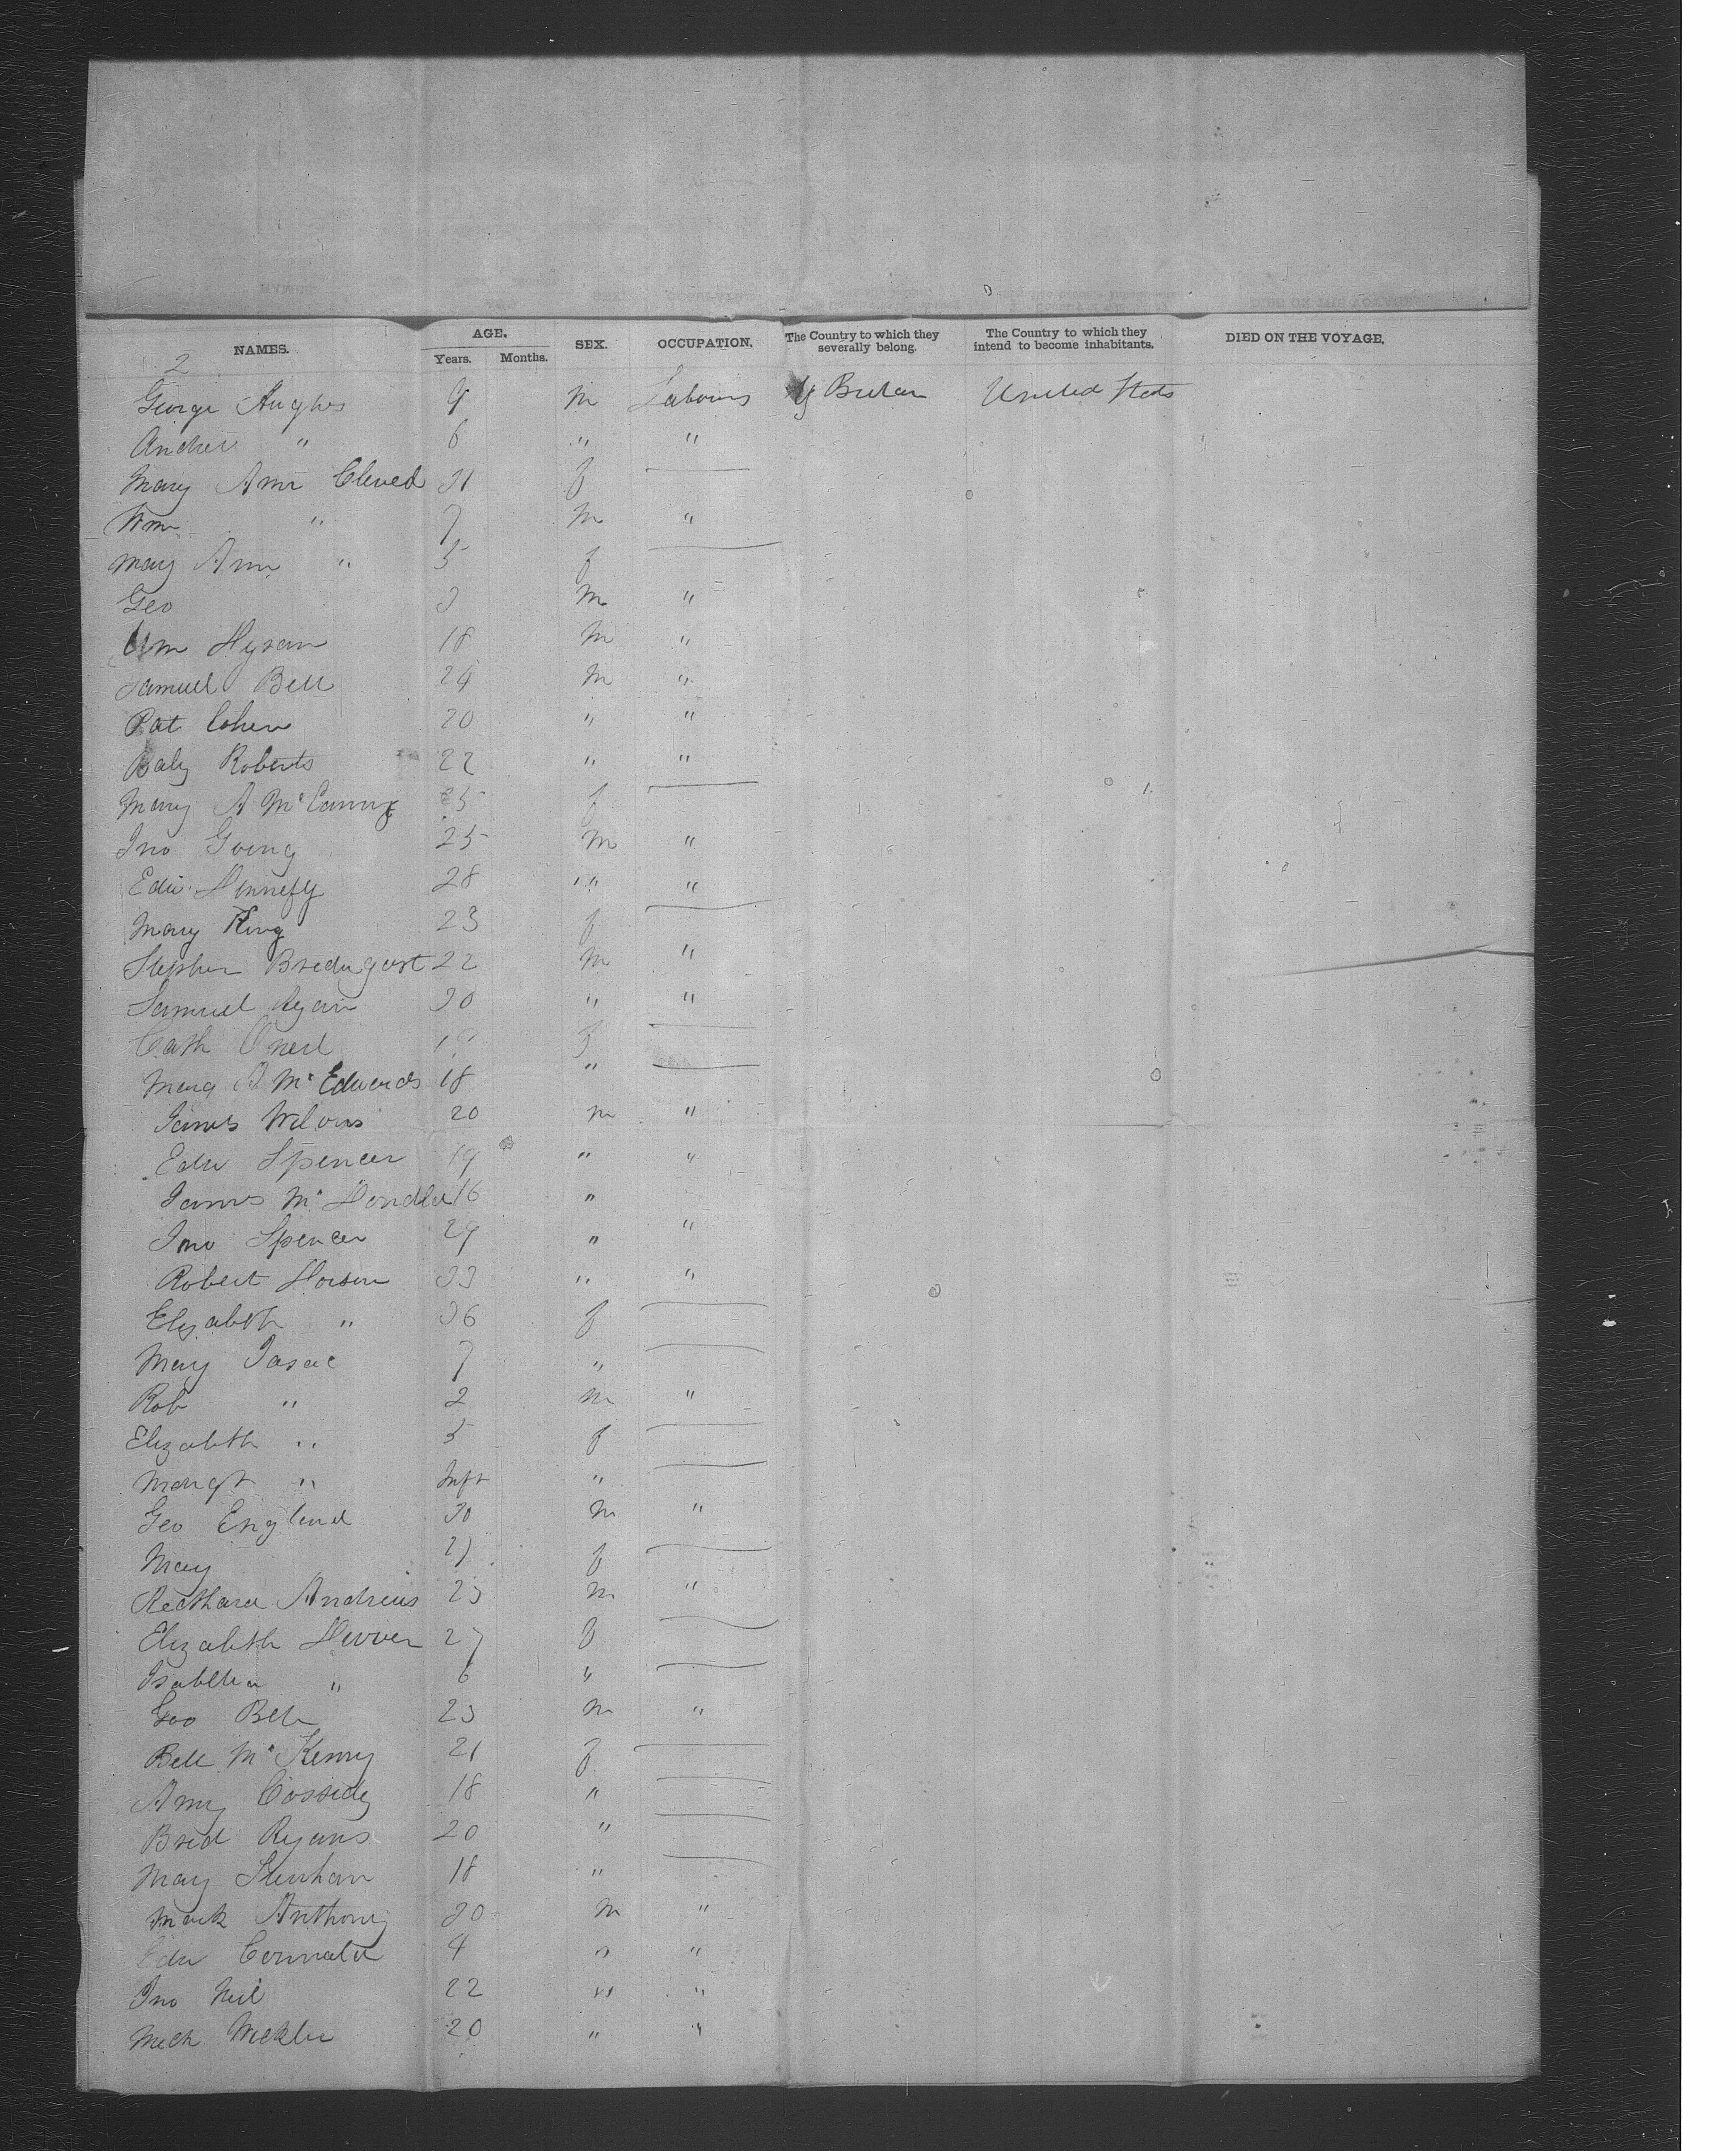 NAMES. AGE. Years. Months. SEX. OCCUPATION. The Country to which they severally belong. The Country to which they intend to become inhabitants. DIED ON THE VOYAGE.
2
George Hughes 9 m Labours G Britan United Stats
Andrew " 6 " "
Mary Ann Cleued 31 f
Wm " 7 m "
Mary Ann " 5 f
Geo 3 m "
Wm Hysan 18 m "
Samuel Bell 24 m "
Pat Cohen 20 " "
Roberts 22 " "
Mary A f
Jno Going 25 m "
Edw 28 " "
Mary King 23 f
Stephen 22 m "
Samuel Ryan 30 " "
Cath Oneil f
Mary A Mc Edwards 18 "
James 20 m "
Edw Spencer 19 " "
James Mc 16 "
Jno Spencer 29 " "
Robert 33 " "
Elizabeth " 36 f
Mary Isaac 7 "
Rob " 2 m "
Elizabeth " 5 f
Margt " Inft "
Geo England 30 m "
Mary 27 f
Andrews 23 m "
Elizabeth 27 f
Isabella " 6 "
Geo Bell 23 m "
Bell Mc Kenny 21 f
Amy Cassidy 18 "
Brid Ryans 20 "
Mary 18 "
Mark Anthony 30 m "
Edw 4 " "
Jno Neil 22 " "
Mich 20 " "